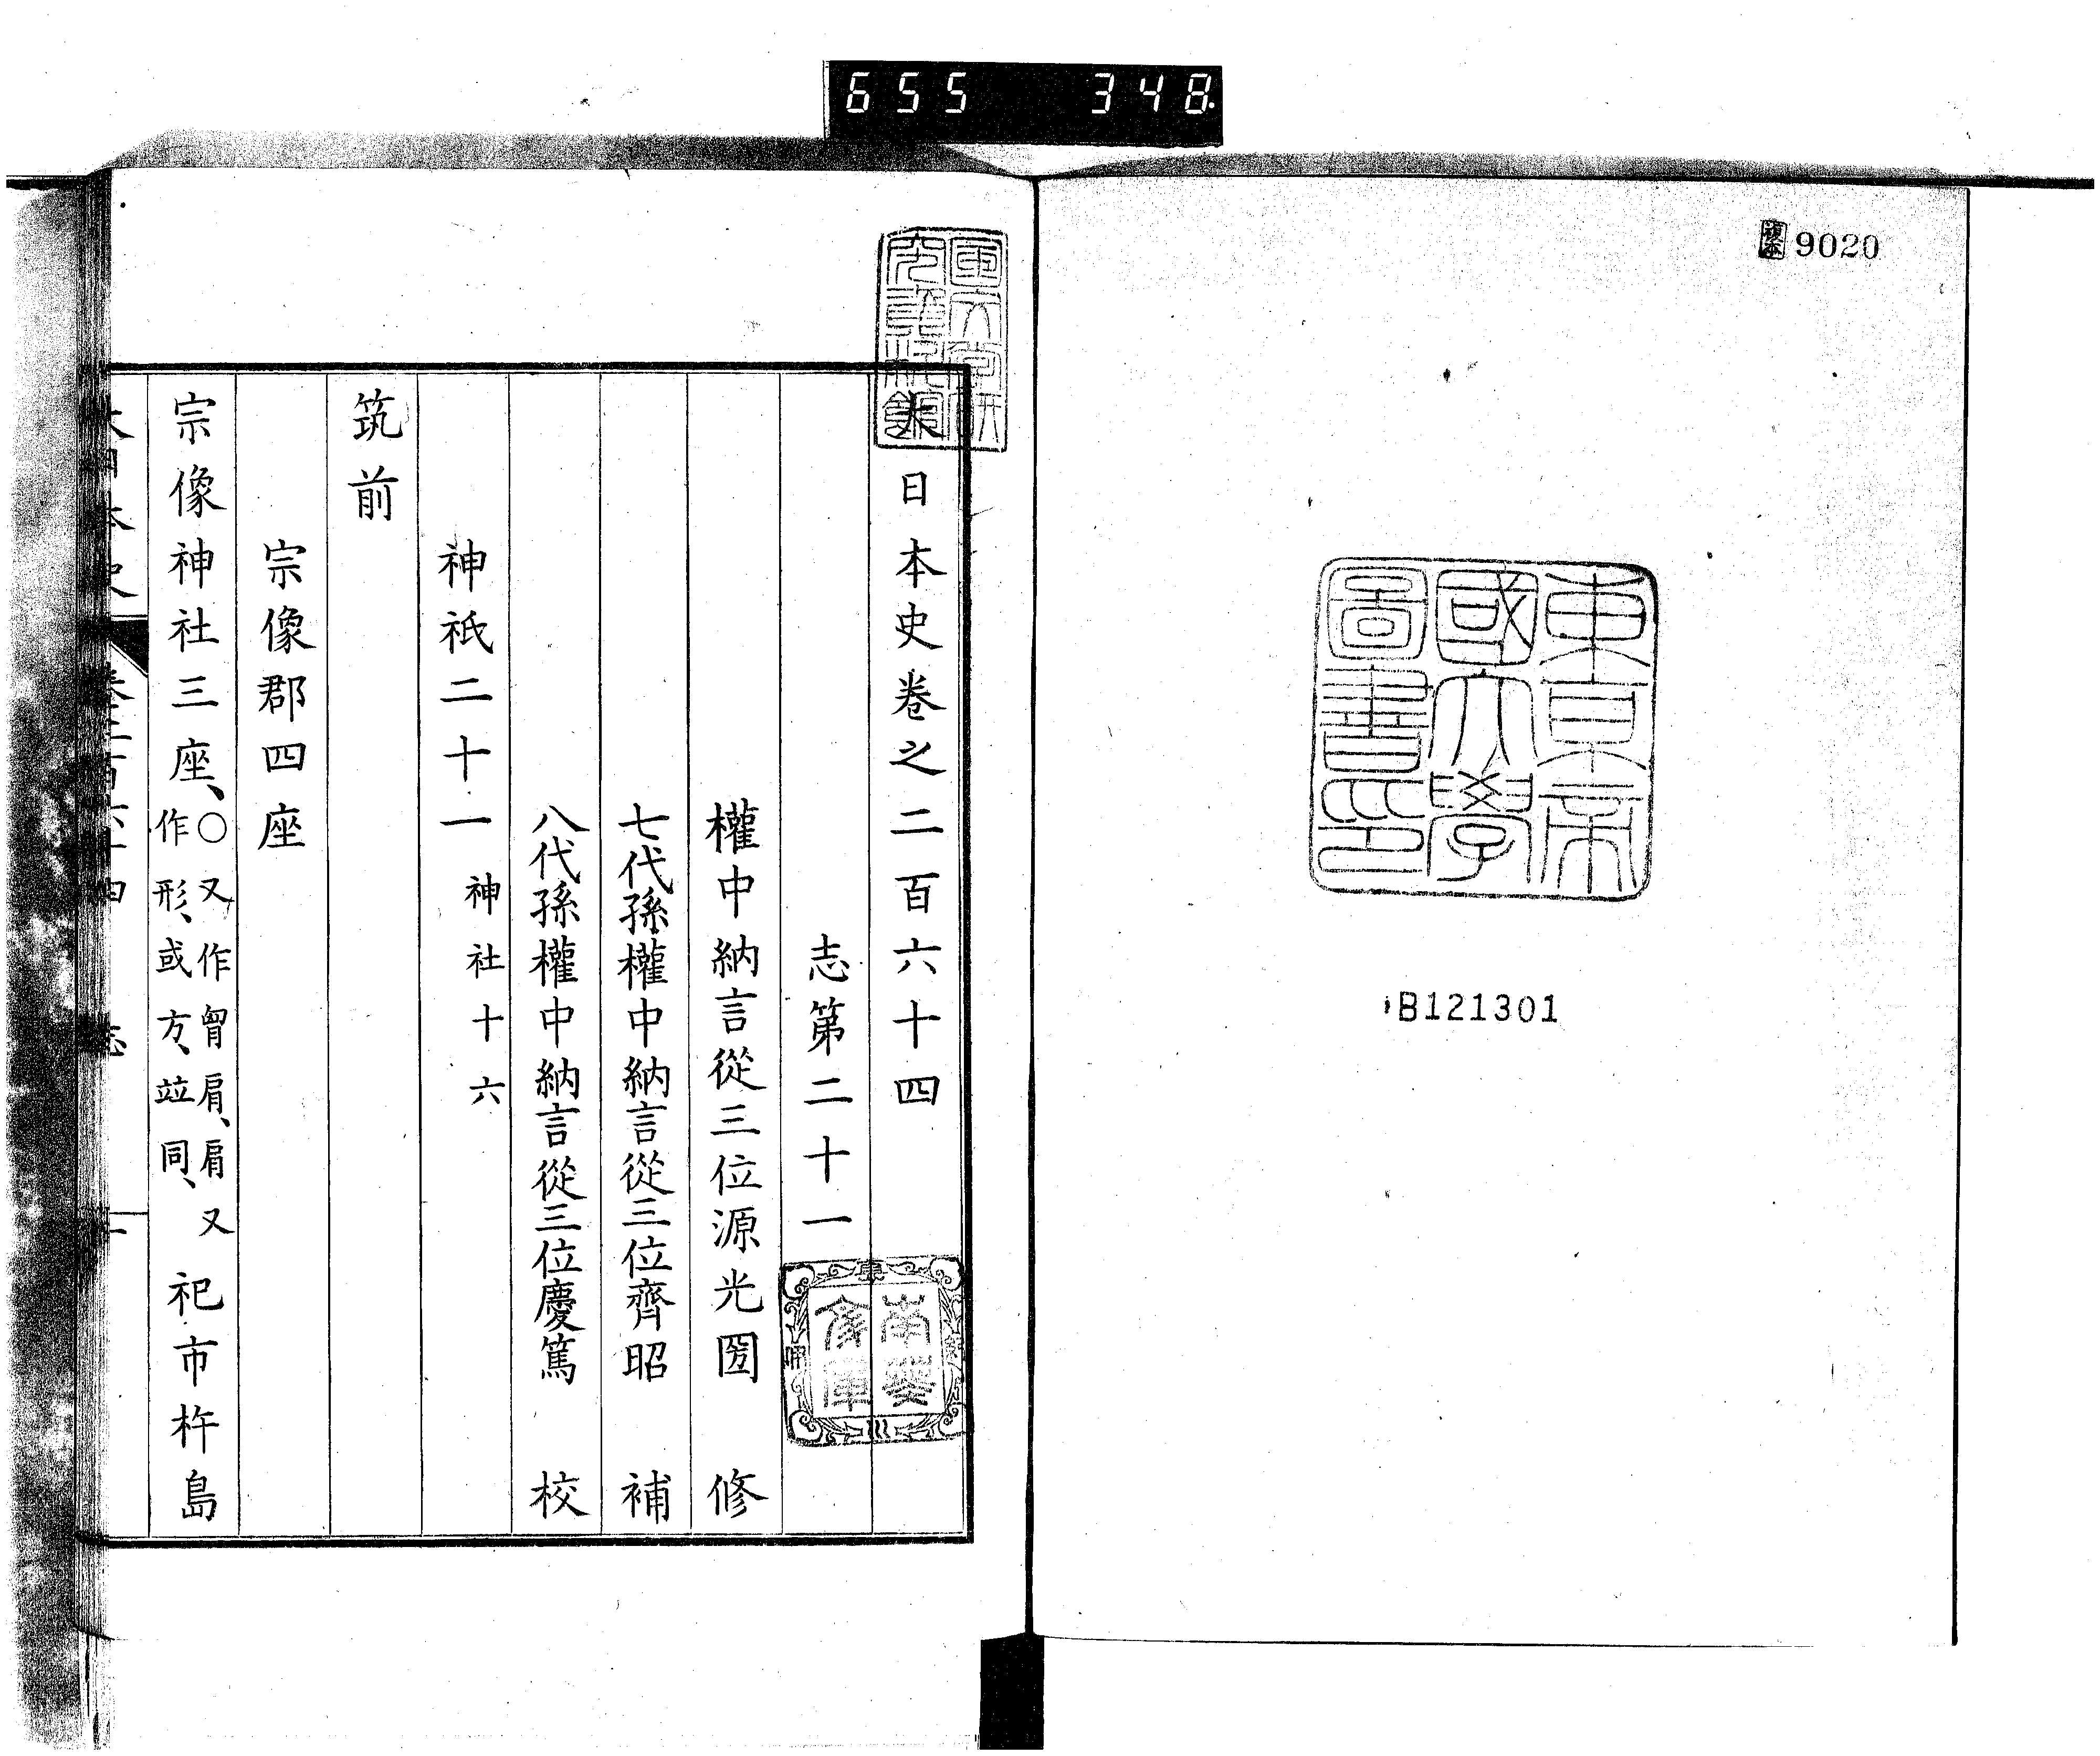 655 348.
複本 9020
東京帝
國大學
圖書印
B121301
大日本史卷之二百六十四
志第二十一
權中納言從三位源光圀 修
七代孫權中納言從三位齊昭 補
八代孫權中納言從三位慶篤 校
神祇二十一 神社十六
筑前
宗像郡四座
宗像神社三座、○又作胷肩、肩又作形、或方、竝同、祀市杵島
南葵
文庫